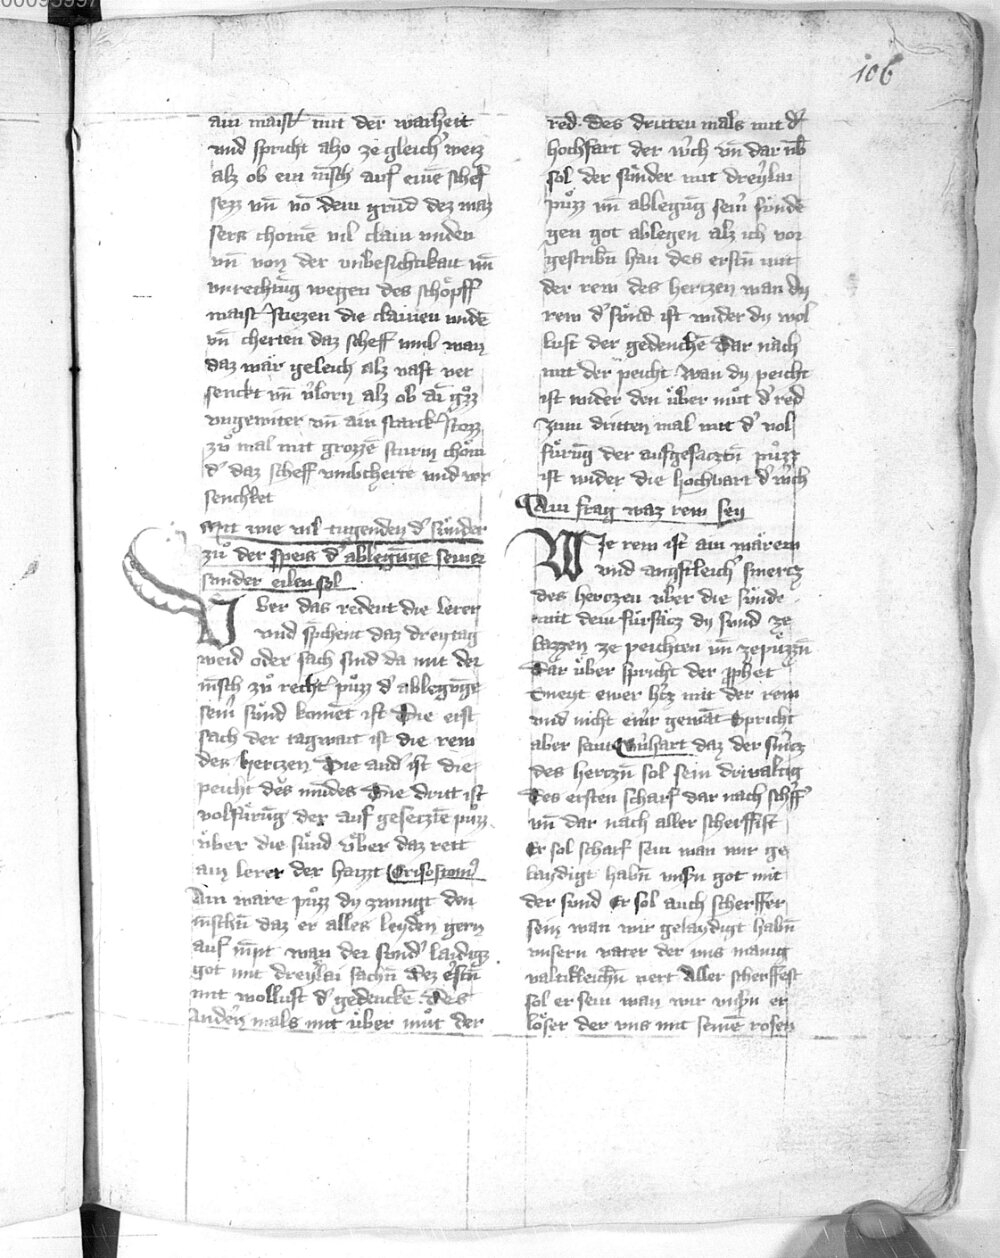 106
ain maist' mit der warheit
und spricht also ze gleich' weiz
alz ob ein m̄sch auf eine schef
sezz vn̄ vō dem grūd dez waz
sers chomē vil clain unden
vn̄ von der unbesichtikait vn̄
unrechtūg wegen des schöpff
maist' stiezen die clainen undē
vn̄ cherten daz scheff umb wan
daz wär geleich alz vast ver
senckt vn̄ v'lorn alz ob ai gözz
ungewiter vn̄ ain starck stozz
zů mal mit grozzē sturm chöm
d' daz scheff umbcherte und ver
senchket
Mit wie vil tugenden d' sünder
zů der speis d' ablegūge seiner
sunder eilen sol
Uber das redent die lerer
und sp̄chent daz drey tag
weid oder sach sind da mit der
m̄sch zů recht' půzz d' ablegūge
sein' sünd komet ist Die erst
sach der tagwait ist die rew
des hertzen Die and' ist die
peicht des mūdes Die dritt ist
volfürūg der auf gesetztē půzz
über die sünd Uber daz rett
ain lerer der haizzt Crisostom'
Ain ware půzz dy zwingt den
m̄schn̄ daz er alles leyden gern
auf nīpt wan der sund' laidigz
got mit dreylai sachn̄ Dez erstn̄
mit wollust d' gedenckē. Des
andern mals mit über můt der
red. des dritten mals mit d'
hochfart der w'ch vn̄ dar ūb
sol der sünder mit dreylai
půzz vn̄ ablegūg sein' sünde
gen got ablegen alz ich vor
gescribn̄ han des erstn̄ mit
der rew des hertzen wan dy
rew d' sünd ist wider dy wol
lust der gedencke Dar nach
mit der peicht wan dy peicht
ist wider den über můt d' red
zum dritten mal mit d' vol
fürūg der aufgesacztn̄ půzz
ist wider die hochvart d' w'ch
Ain frag waz rew sey
Wie rew ist ain wärew
und angstleich' smertz
des hertzen über die sünde
mit dem fürsacz dy sund ze
lazzen ze peichten vn̄ ze püzzn̄
Dar über spricht der p̄phet
Sneyt ewer h'tz mit der rew
und nicht ewr gewāt Spricht
aber sant Bernhart daz der sm'tz
des hertzn̄ sol sein drivaltig
Des ersten scharf dar nach sch'ff'
vn̄ dar nach aller scherffist
Er sol scharf sein wan wir ge
laydigt habn̄ uns'n got mit
der sund Er sol auch scherffer
sein wan wir gelaydigt habn̄
unsern vater der uns manig
valtikleichn̄ nert Aller scherffest
sol er sein wan wir uns'n er
löser der uns mit seinē rosen